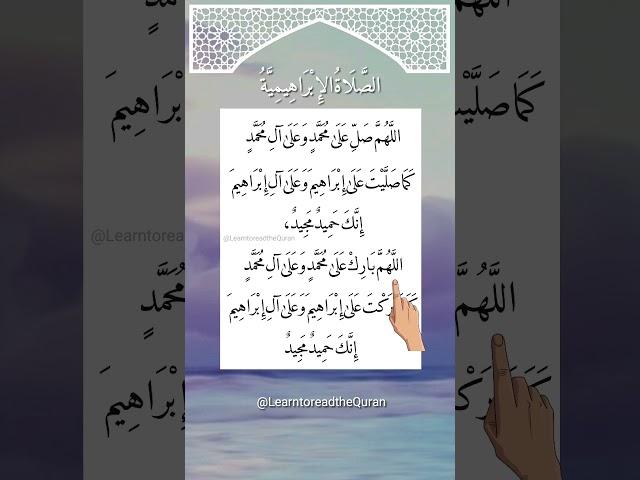 الصَّلَاةُ الإِبْرَاهِيمِيَّةُ
اللَّهُمَّ صَلِّ عَلَىٰ مُحَمَّدٍ وَعَلَىٰ آلِ مُحَمَّدٍ
كَمَا صَلَّيْتَ عَلَىٰ إِبْرَاهِيمَ وَعَلَىٰ آلِ إِبْرَاهِيمَ
إِنَّكَ حَمِيدٌ مَجِيدٌ،
@LearntoreadtheQuran
اللَّهُمَّ بَارِكْ عَلَىٰ مُحَمَّدٍ وَعَلَىٰ آلِ مُحَمَّدٍ
عَلَىٰ إِبْرَاهِيمَ وَعَلَىٰ آلِ إِبْرَاهِيمَ
إِنَّكَ حَمِيدٌ مَجِيدٌ
@LearntoreadtheQuran